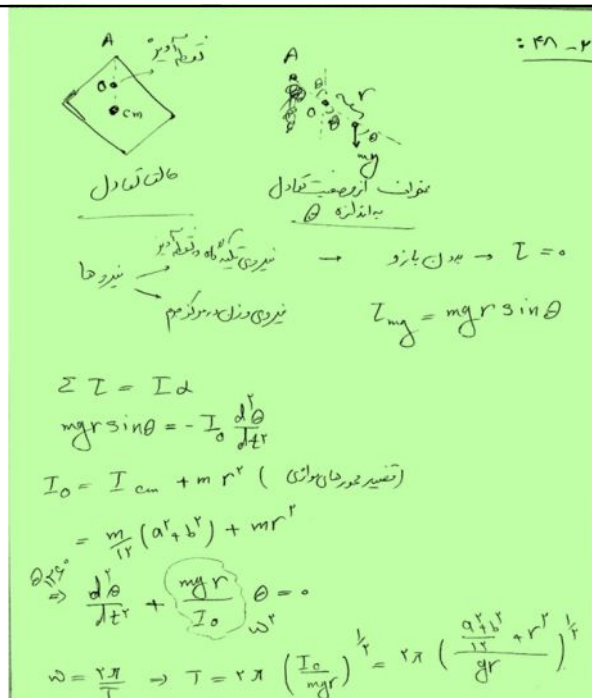 ۲-۴۸ :
A نقطه آویز
O
cm
حالت تعادل
A
θ r
O θ
θ
mg
از وضعیت تعادل
به اندازه θ
نیروها
نیروی تکیه گاه در نقطه آویز → بدون بازو → τ = ۰
نیروی وزن در مرکز جرم
τmg = mgr sinθ
Σ τ = Iα
mgr sinθ = - I₀ d²θ/dt²
I₀ = Icm + mr² (قضیه محورهای موازی)
= m/۱۲ (a² + b²) + mr²
⇒ d²θ/dt² + mgr/I₀ θ = ۰
ω²
ω = ۲π/T → T = ۲π (I₀/mgr)^½ = ۲π ((a²+b²)/۱۲ + r² / gr)^½